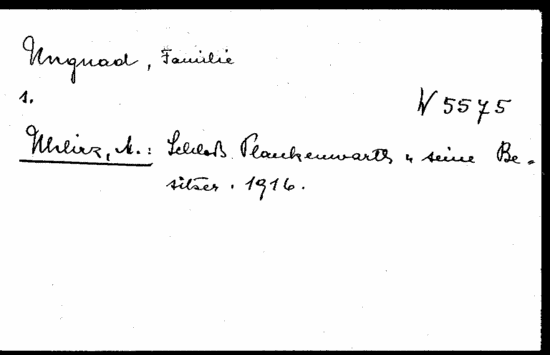 Ungnad, Familie
s.
W 5575
Uhlirz, M.: Schloß Plankenwarth u seine Be-
sitzer. 1916.